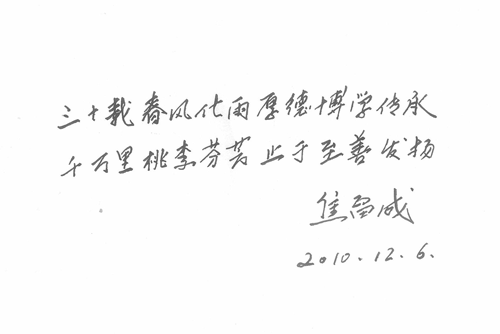 三十载春风化雨厚德博学传承
千万里桃李芬芳止于至善发扬
焦

成
2010.12.6.